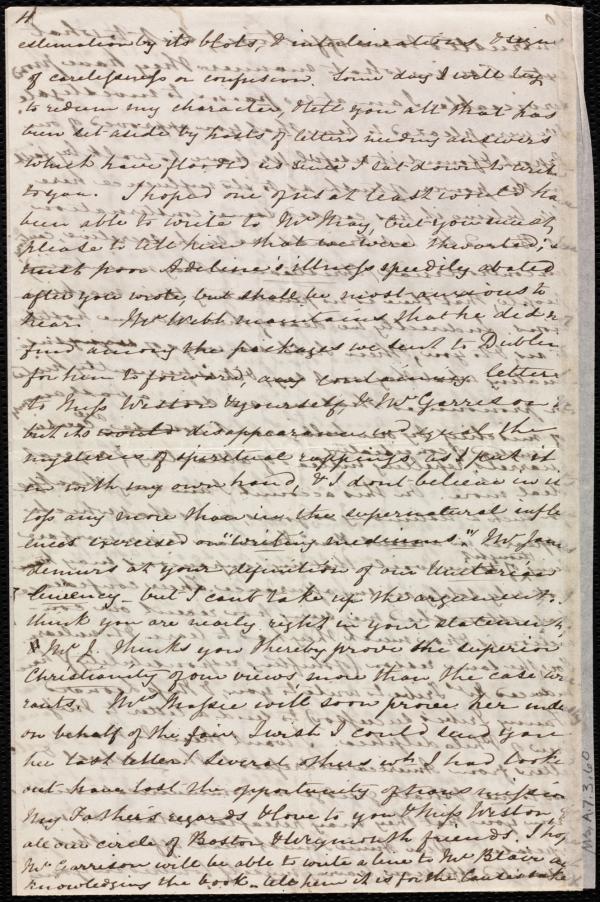 4
estimation by its blots, & interlineations & signs
of carelessness or confusion. Some day I will try
to redeem my character, & tell you all that has
been set aside by hosts of letters needing answers
which have flooded us since I sat down to write
to you. I hoped one of us at least would ha
been able to write to Mr May, but you must,
please to tell him that we were thwarted;
trust poor Adeline's illness speedily abated
after you wrote, but shall be most anxious to
hear. Mr Webb maintains that he did n
find among the packages we sent to Dublin
for him to forward, any containing letters
to Miss Weston & yourself, & Mr Garrison
but its disappearance would equal the
mysteries of spiritual rappings, as I put it
in with my own hand, & I don't believe in
any more than in the supernatural influ
ences exercised on "writing mediums". Mr Jam
demurs at your definition of our Unitarian
leniency - but I can't take up the argument.
think you are nearly right in your statement,
& Mr J. thinks you thereby prove the superior
Christianity of our views, more than the case war
rants. Mrs Massie will soon prove her
on behalf of the fair, I wish I could send you
her last letter! Several others wh. I had look
out have lost the opportunity of transmission
My Father's regards & love to you & Miss Weston,
all our circle of Boston & Weymouth friends. I ho
Mr Garrison will be able to write a line to Mr Blair a
knowledging the book - tell him it is for the Cause's sake
Ms.A.7.3.60